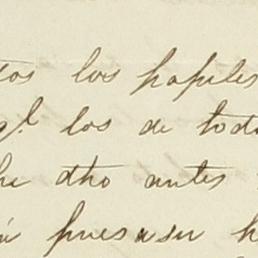 tos los papeles
los de todo
he dho antes
pues